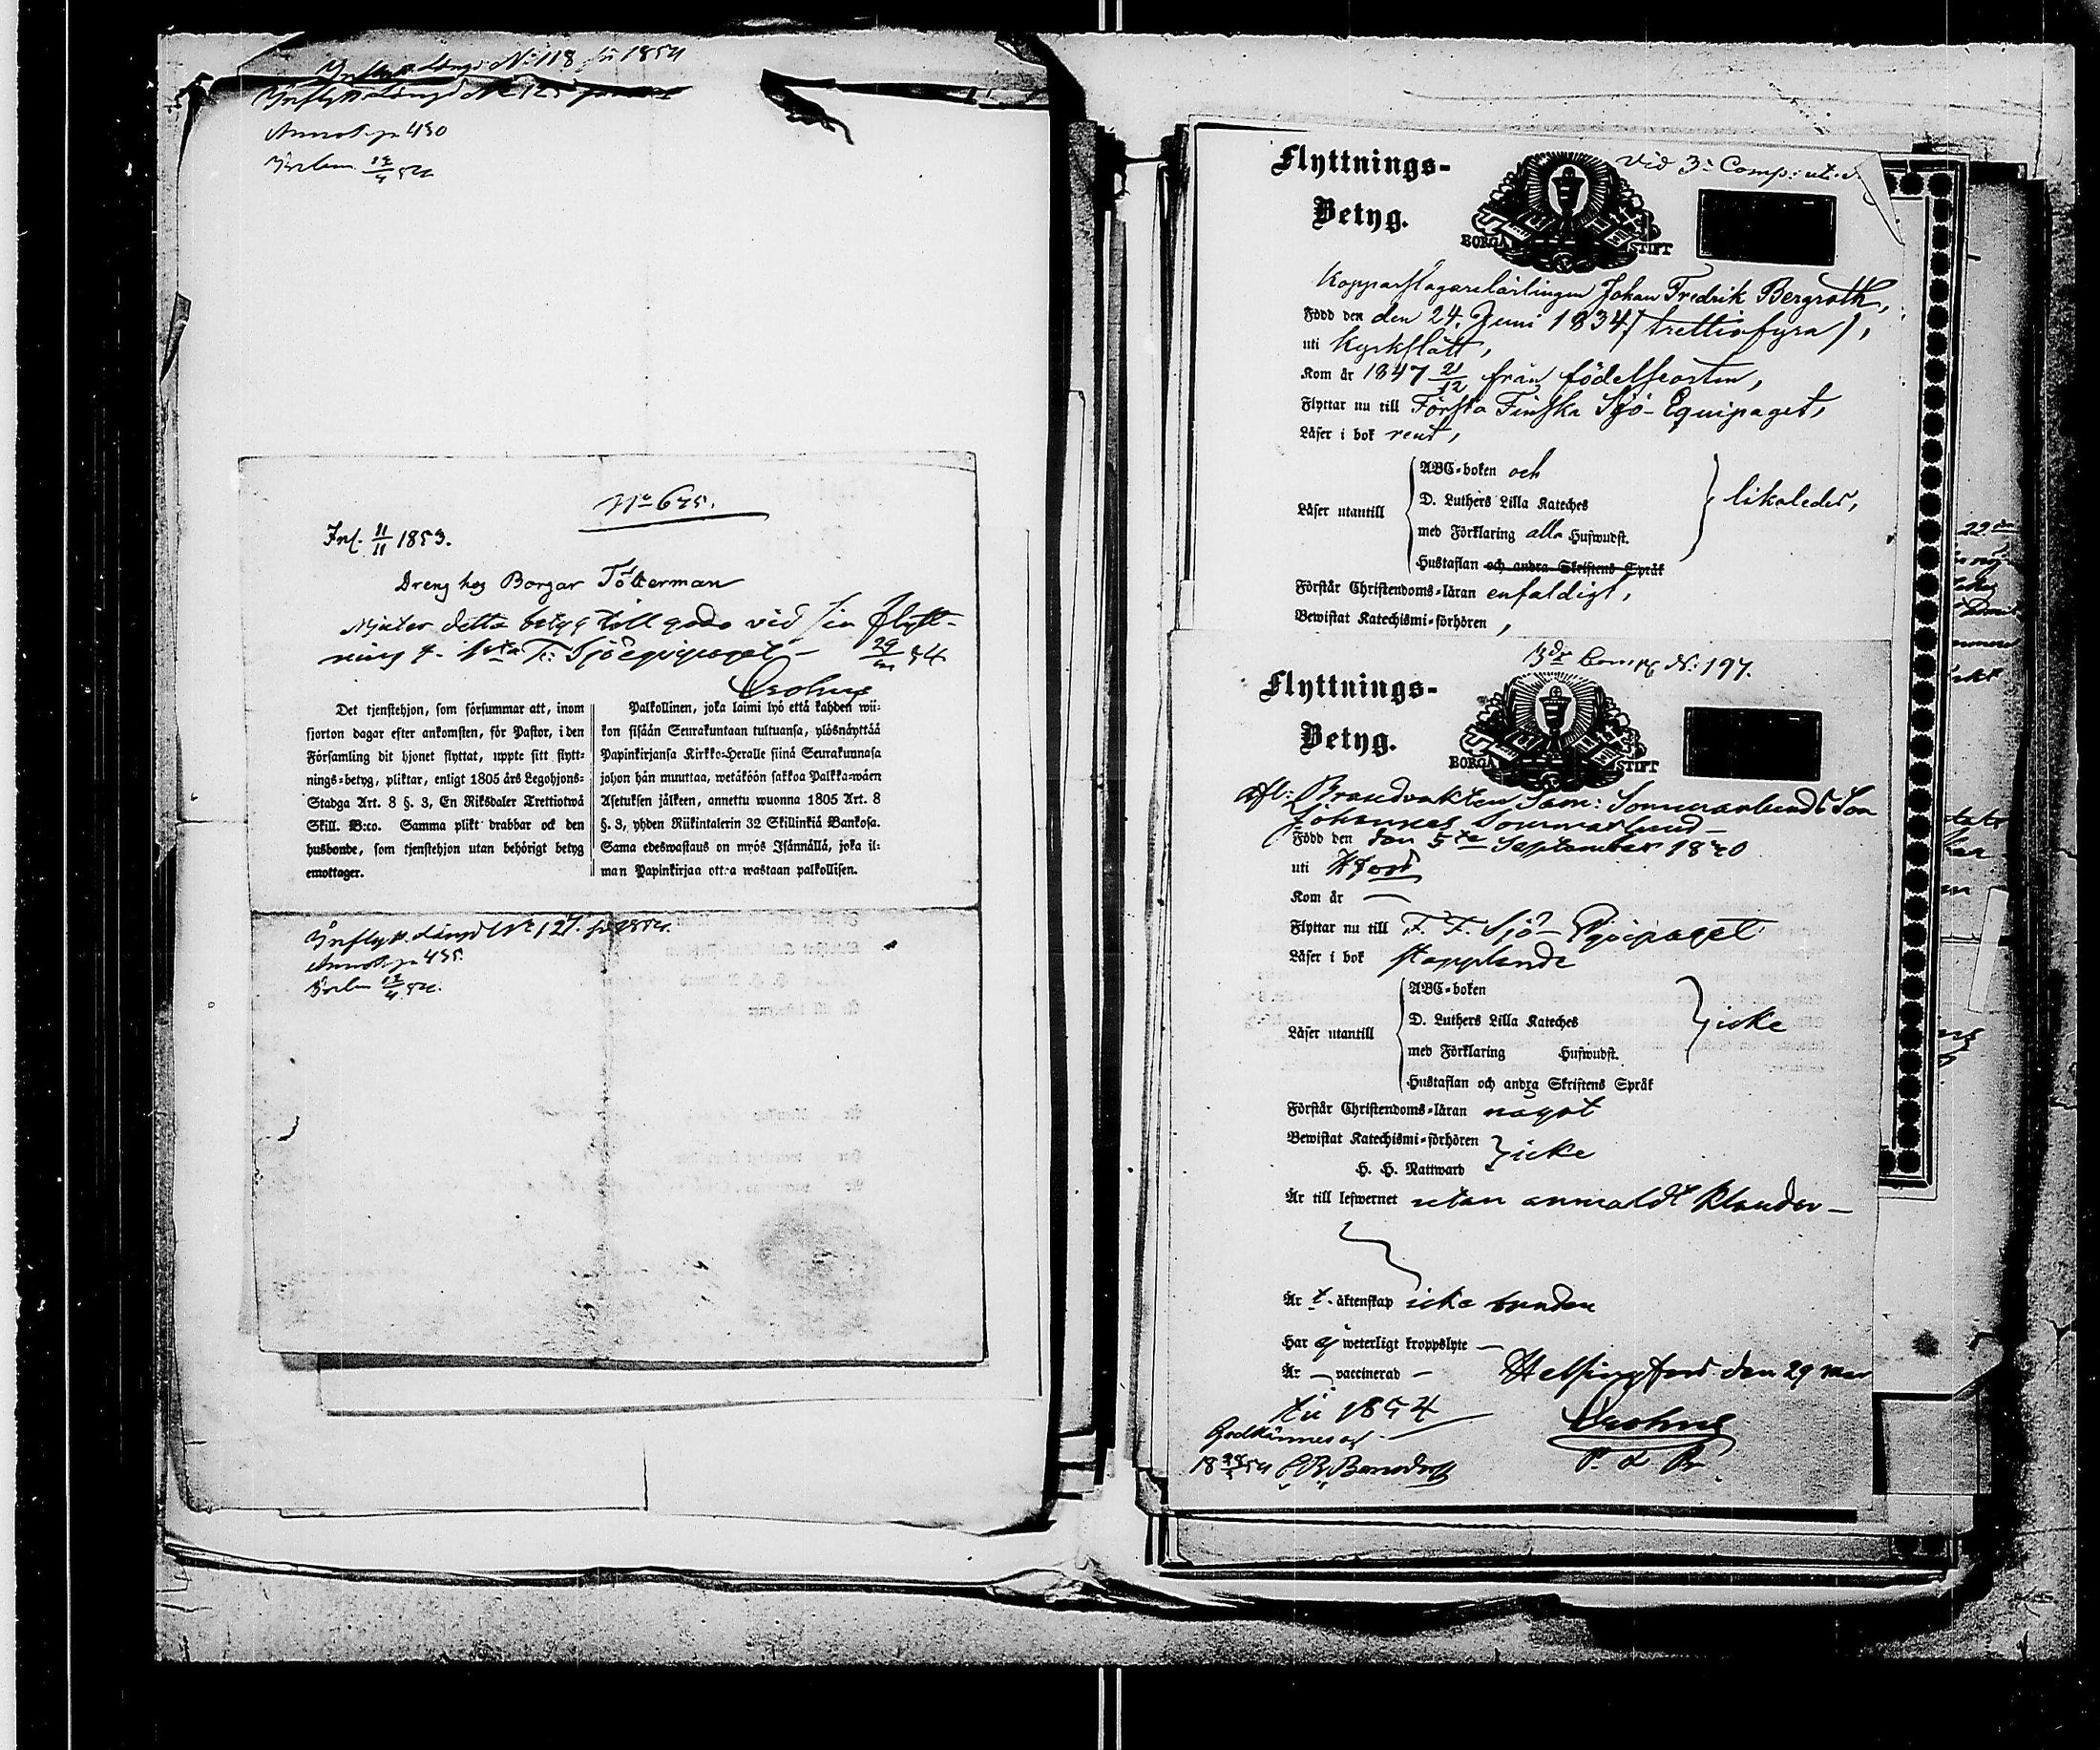 Inflytt. Längd No 118 för 1854
Inflytt. Längd No 125
Annot. p 430
No 645.
Inl. 11/11 1853.
Dreng hos Borgar Töterman
Njuter detta betyg till godo vid sin flytt-
ning t. 1sta F. Sjöequipaget – 29/3 54
Crohns
Det tjenstehjon, som försummar att, inom
fjorton dagar efter ankomsten, för Pastor, i den
Församling dit hjonet flyttat, uppte sitt flytt-
nings-betyg, pliktar, enligt 1805 års Legohjons-
Stadga Art. 8 §. 3, En Riksdaler Trettiotwå
Skill. B:co. Samma plikt drabbar ock den
husbonde, som tjenstehjon utan behörigt betyg
emottager.
Palkollinen, joka laimi lyö että kahden wii-
kon sisään Seurakuntaan tultuansa, ylösnäyttää
Papinkirjansa Kirkko-Heralle siinä Seurakunnasa
johon hän muuttaa, wetäköön sakkoa Palkka-wäen
Asetuksen jälkeen, annettu wuonna 1805 Art. 8
§. 3, yhden Riikintalerin 32 Skillinkiä Bankosa.
Sama edeswastaus on myös Isännällä, joka il-
man Papinkirjaa ottaa wastaan palkollisen.
Inflytt. Längd No 127. för 1854.
Annot. p 435
Flyttnings-
Betyg.
Vid 3:e Comp:
BORGÅ STIFT
Kopparslagarelärlingen Johan Fredrik Bergroth,
Född den den 24. Juni 1834 (trettiofyra),
uti Kyrkslätt,
Kom år 1847 21/12 från födelseorten,
Flyttar nu till Första Finska Sjö-Equipaget,
Läser i bok rent,
Läser utantill
ABC-boken och
D. Luthers Lilla Kateches
med Förklaring alla Hufwudst.
Hustaflan och andra Skriftens Språk
likaledes,
Förstår Christendoms-läran enfaldigt,
Bewistat Katechismi-förhören ,
3dje Comp. No: 197.
Flyttnings-
Betyg.
BORGÅ STIFT
Afl: Brandvakten Sam: Sommarlunds Son
Johannes Sommarlund –
Född den den 5te September 1840
uti Hfors
Kom år —
Flyttar nu till F. F. Sjö-Eqvipaget
Läser i bok stapplande
Läser utantill
ABC-boken
D. Luthers Lilla Kateches
med Förklaring Hufwudst.
Hustaflan och andra Skriftens Språk
icke
Förstår Christendoms-läran något
Bewistat Katechismi-förhören
H. H. Nattward
icke
Är till lefwernet utan anmäldt klander –
Är t. äktenskap icke bunden
Har ej weterligt kroppslyte —
Är — vaccinerad — Helsingfors den 29 Mar
tii 1854
Crohns
Godkännes af